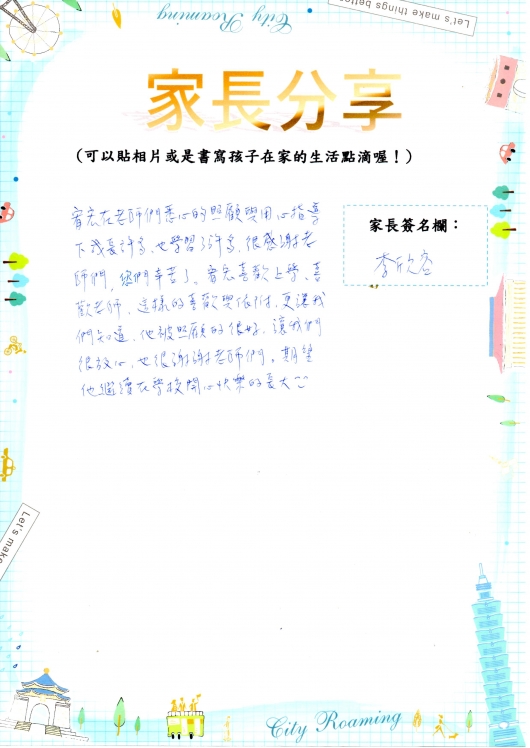 City Roaming
Let's make things bette
家長分享
(可以貼相片或是書寫孩子在家的生活點滴喔！)
宥宏在老師們悉心的照顧與用心指導
下成長許多，也學習了許多，很感謝老
師們，您們辛苦了。宥宏喜歡上學、喜
歡老師，這樣的喜歡與依附，更讓我
們知道，他被照顧的很好，讓我們
很放心，也很謝謝老師們。期望
他繼續在學校開心快樂的長大
家長簽名欄：
李欣容
Let's make
City Roaming